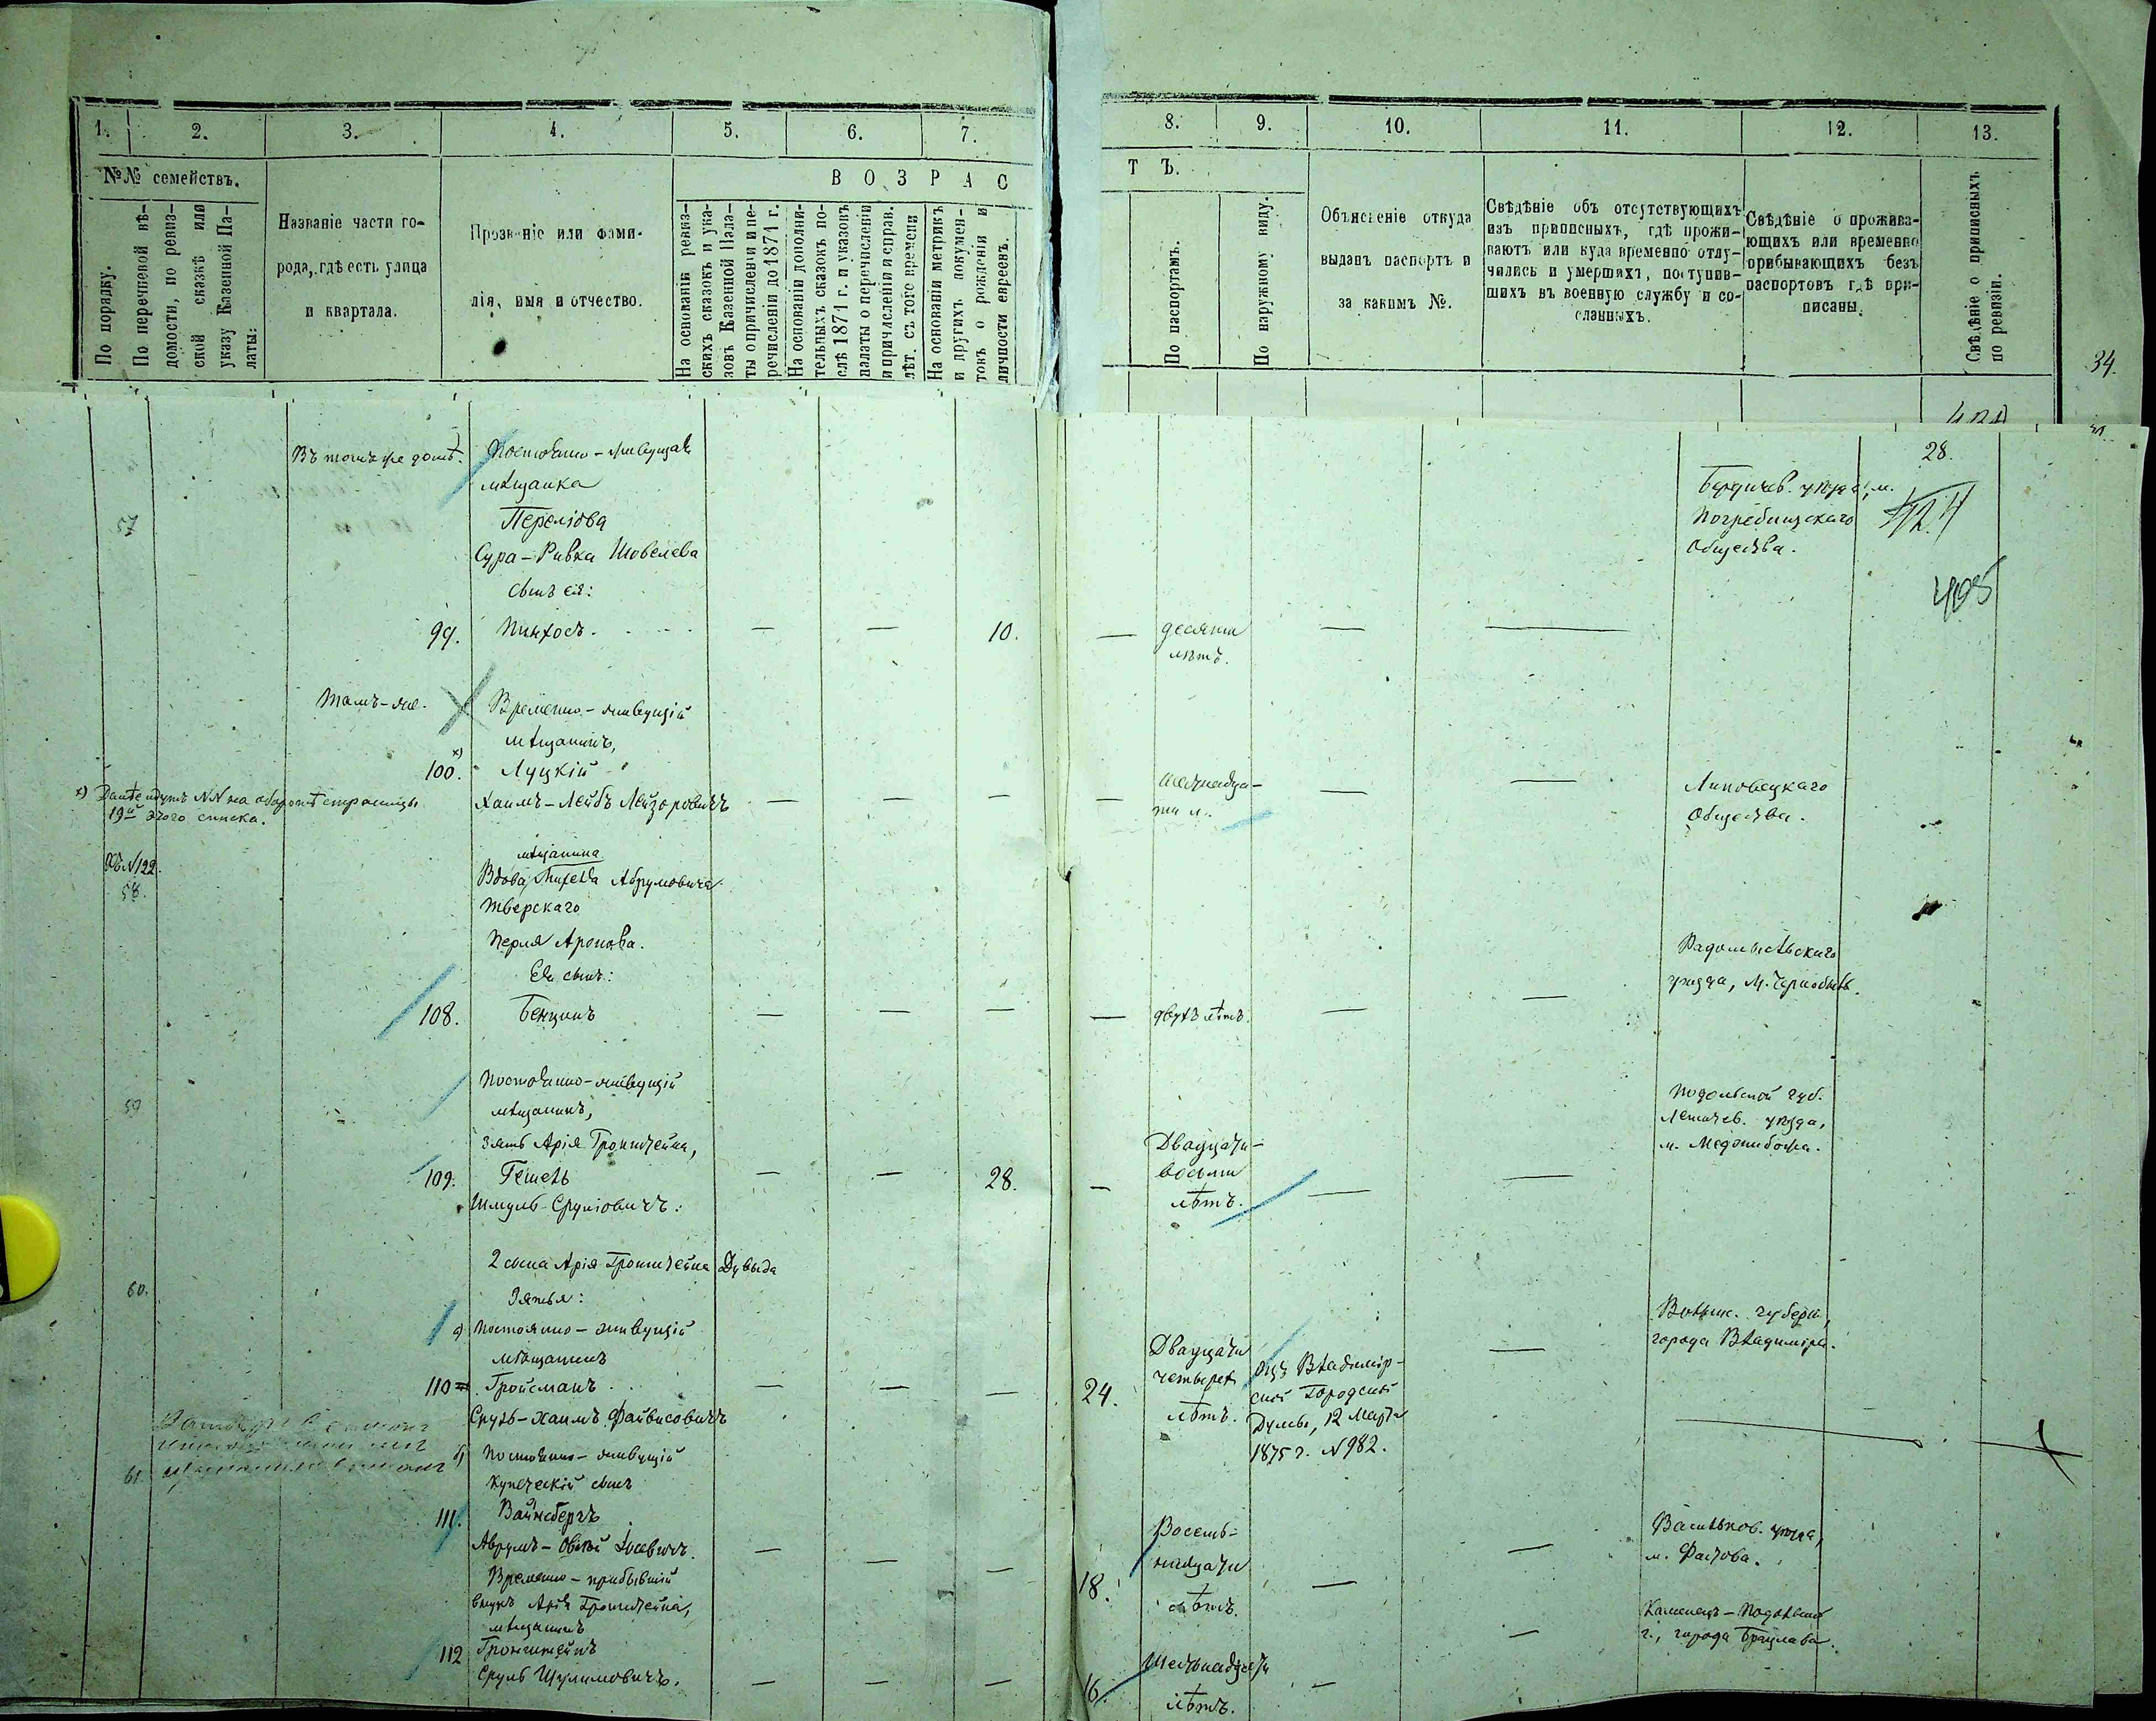 1. 2. 3. 4. 5. 6. 7. 8. 9. 10. 11. 12. 13.
№№ семействъ.
По порядку.
По перечневой вѣ-
домости, по ревиз-
ской сказкѣ или
указу Казенной Па-
латы:
Названіе части го-
рода, гдѣ есть улица
и квартала.
Прозваніе или фами-
лія, имя и отчество.
ВОЗРАС
Т Ъ.
На основаніи ревиз-
скихъ сказокъ и ука-
зовъ Казенной Пала-
ты о причисленіи и пе-
речисленіи до 1874 г.
На основаніи дополни-
тельныхъ сказокъ по-
слѣ 1874 г. и указовъ
палаты о перечисленіи
и причисленіи и справ.
лѣт. съ того времени
На основаніи метрикъ
и другихъ докумен-
товъ о рожденіи и
личности евреевъ.
По паспортамъ.
По наружному виду.
Объясненіе откуда
выданъ паспортъ и
за какимъ №.
Свѣдѣніе объ отсутствующихъ
изъ приписныхъ, гдѣ прожи-
ваютъ или куда временно отлу-
чились и умершихъ, поступив-
шихъ въ военную службу и со-
сланныхъ.
Свѣдѣніе о прожива-
ющихъ или временно
прибывающихъ безъ
паспортовъ гдѣ при-
писаны.
Свѣдѣніе о приписныхъ
по ревизіи.
34.
28.
405
57
Въ томъ же домѣ.
Постоянно-живущая
мѣщанка
Сура-Ривка Шовелева
сынъ ея:
99. Пинхосъ. — — 10. — десяти
лѣтъ. — —
Бердичев. уѣзда, м.
Погребищскаго
Общества.
Тамъ-же.
Временно-живущій
мѣщанинъ,
х)
100. Луцкій
Хаимъ-Лейбъ Лейзоровичъ — — — —
х) Далѣе идутъ №№ на оборотѣ страницы
19й этого списка.
Липовецкаго
Общества.
58.
мѣщанина
Вдова, Михеля Абрумовича
Тверскаго
Перля Аронова.
Ея сынъ:
108. Бенцинъ — — — — двухъ лѣтъ. — —
Радомысльскаго
уѣзда, м. Чернобыль.
59
Постоянно-живущій
мѣщанинъ,
зять Арія Гронштейна,
109. Гешель — — 28. —
Шмуль-Сруліовичъ.
Двадцати-
восьми
лѣтъ. — —
Подольской губ.
Летичев. уѣзда,
м. Меджибожа.
60.
2 сына Арія Гронштейна Дувыда
Зятья:
а) Постоянно-живущій
мѣщанинъ
110 Гройсманъ — — — 24.
Сруль-Хаимъ Файвисовичъ
Двадцати
четырехъ
лѣтъ.
Изъ Владимір-
ской Городской
Думы, 12 Марта
1875 г. №982.
Волын. губерн.,
города Владиміра.
61.
б) Постоянно-живущій
купеческій сынъ
111. Вайнсбергъ
Аврумъ-Овшій Іосевичъ. — — — 18.
Восемь-
надцати
лѣтъ. — —
Васильков. уѣзда,
м. Фастова.
Временно-прибывшій
внукъ Арія Гронштейна,
мѣщанинъ
112 Гронштейнъ
Сруль Шулимовичъ. — — — 16.
Шестнадцати
лѣтъ. — —
Каменецъ-Подольск.
г., города Брацлава.